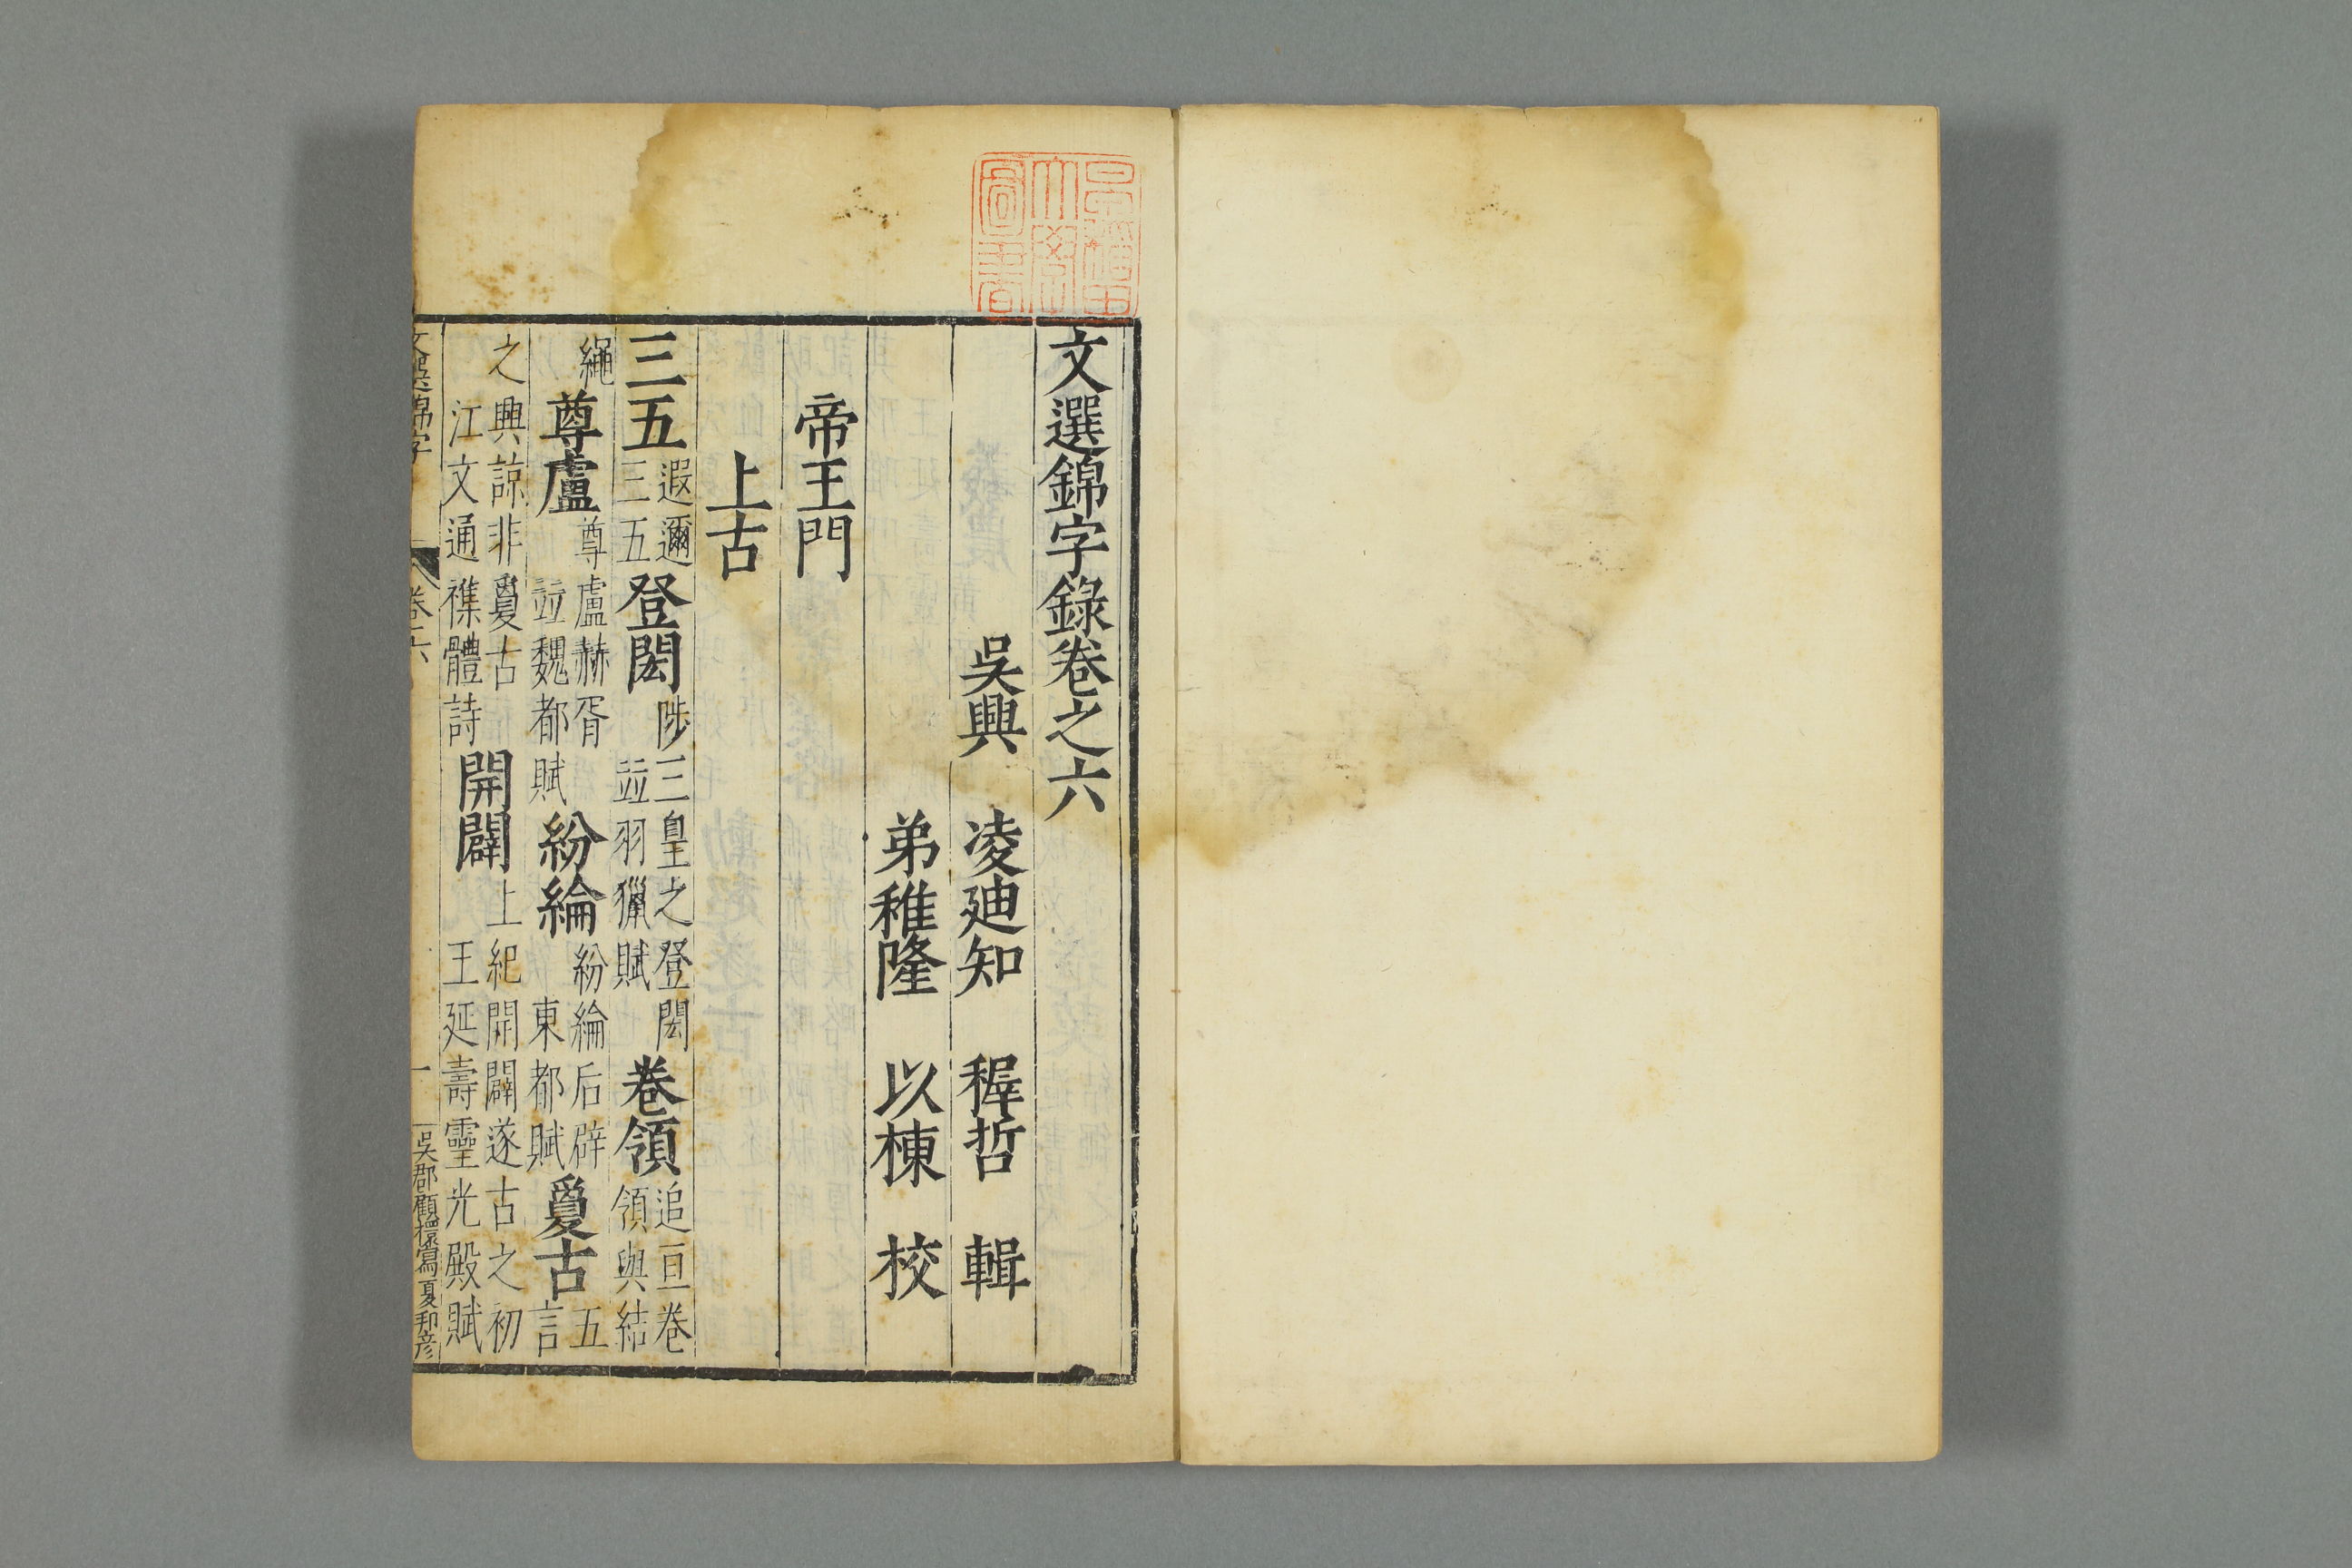 文選錦字錄卷之六
吳興 凌廸知 穉哲 輯
弟稚隆 以棟 校
帝王門
上古
三五遐邇三五登閎陟三皇之登閎竝羽獵賦卷領追亘卷領與結
繩尊盧尊盧赫胥竝魏都賦紛綸紛綸后辟東都賦敻古五言
之興諒非敻古江文通襍體詩開闢上紀開闢遂古之初王延壽靈光殿賦
文選錦字 卷六 一 吳郡顧檈寫夏邦彦
早稻田大學圖書